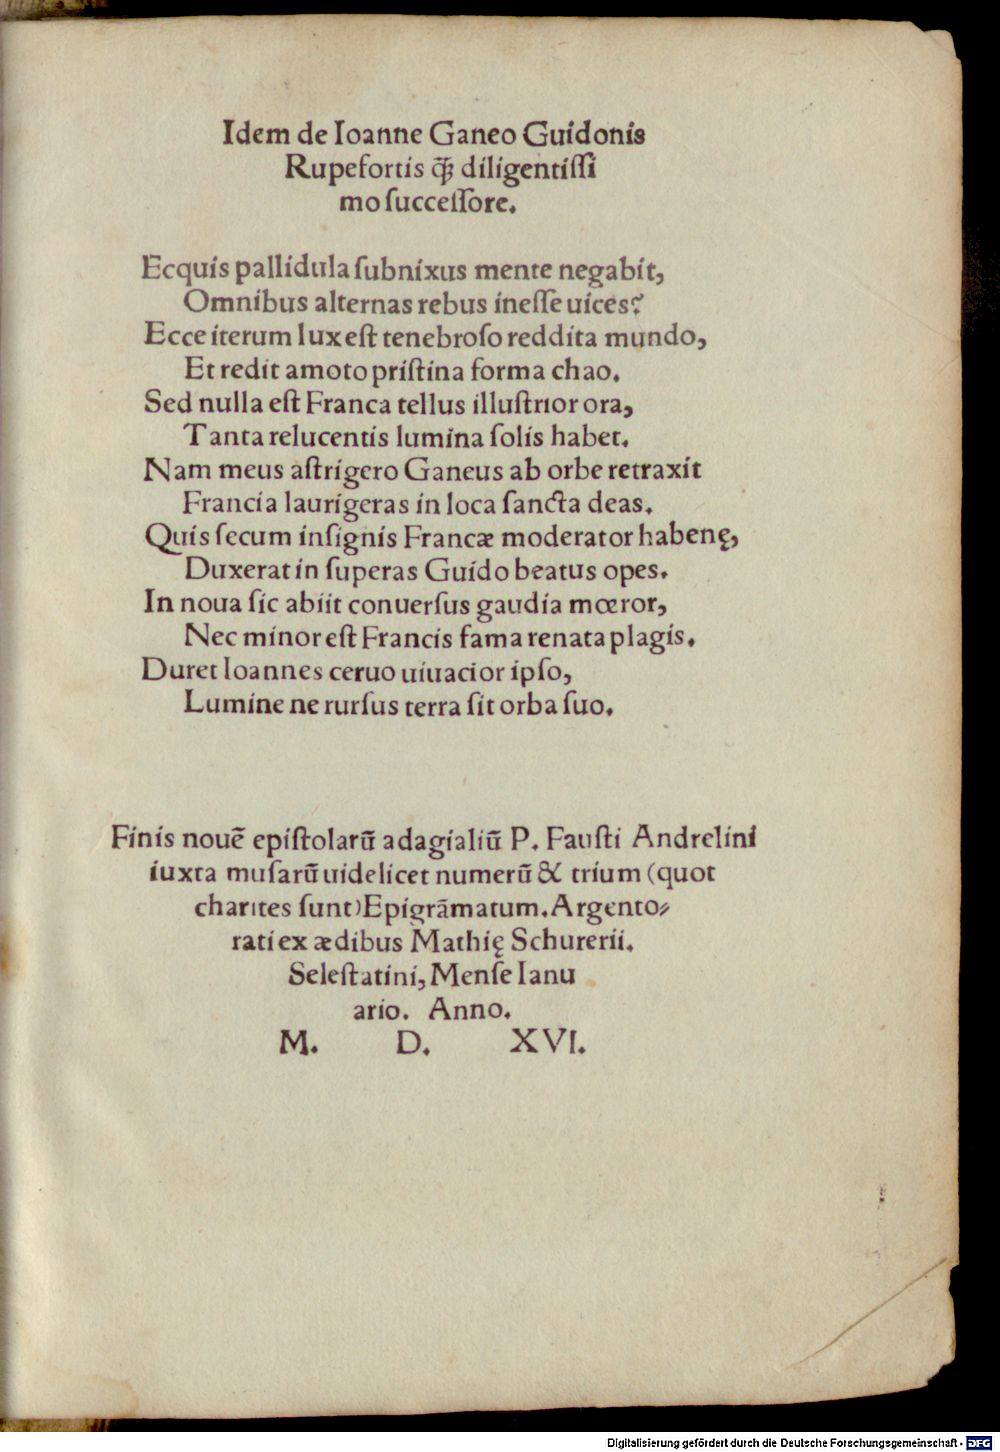 Idem de Ioanne Ganeo Guidonis
Rupefortis q̃ꝫ diligentiſſi
mo ſucceſſore.
Ecquis pallidula ſubnixus mente negabit,
Omnibus alternas rebus ineſſe uices?
Ecce iterum lux eſt tenebroſo reddita mundo,
Et redit amoto priſtina forma chao.
Sed nulla eſt Franca tellus illuſtrior ora,
Tanta relucentis lumina ſolis habet.
Nam meus aſtrigero Ganeus ab orbe retraxit
Francia laurigeras in loca ſancta deas.
Quis ſecum inſignis Francæ moderator habenę,
Duxerat in ſuperas Guido beatus opes.
In noua ſic abiit conuerſus gaudia mœror,
Nec minor eſt Francis fama renata plagis.
Duret Ioannes ceruo uiuacior ipſo,
Lumine ne rurſus terra ſit orba ſuo.
Finis nouẽ epiſtolarũ adagialiũ P. Fauſti Andrelini
iuxta muſarũ uidelicet numerũ & trium (quot
charites ſunt) Epigrãmatum. Argento⸗
rati ex ædibus Mathię Schurerii.
Seleſtatini, Menſe Ianu
ario. Anno.
M. D. XVI.
Digitalisierung gefördert durch die Deutsche Forschungsgemeinschaft - DFG